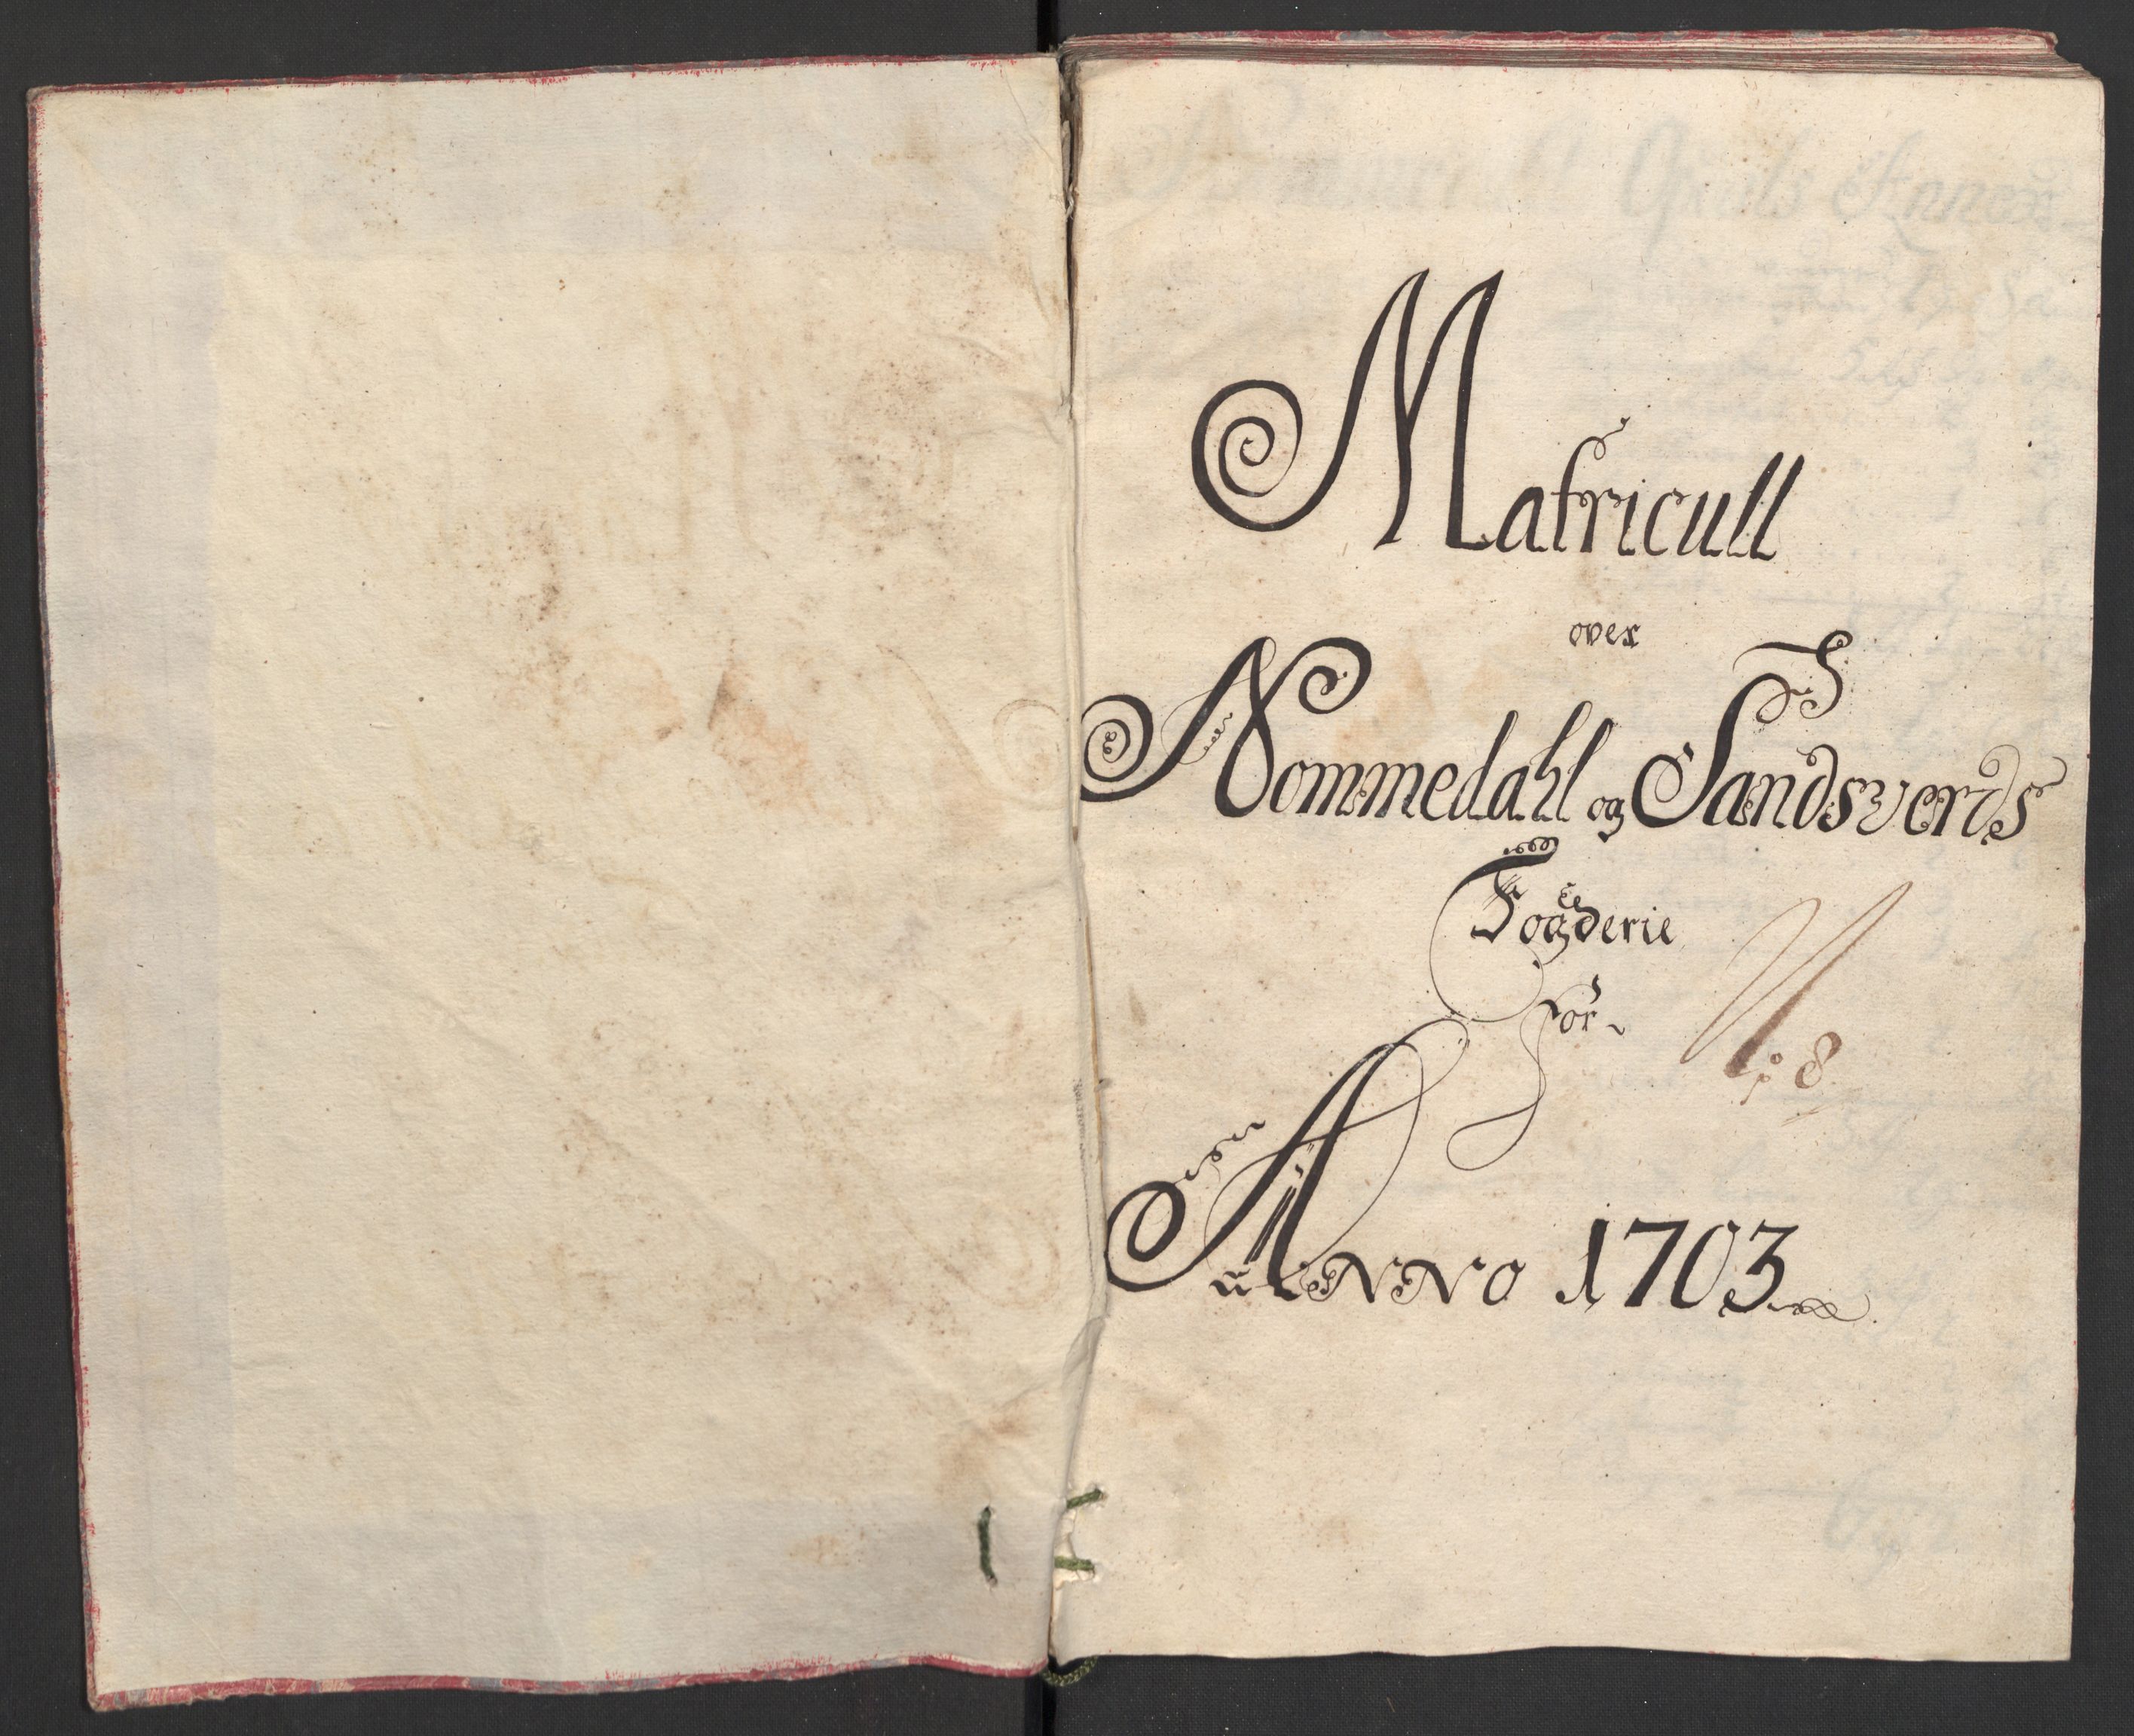 Matricull
over
Nommedahl og Sandsverds
Fogderie
for
N: 8
Anno 1703